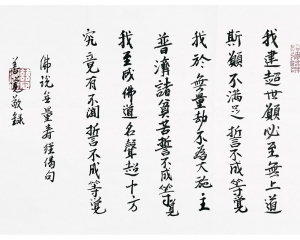 我建超世願必至無上道
斯願不滿足誓不成等覺
我於無量劫不為大施主
普濟諸貧苦誓不成等覺
我至成佛道名聲超十方
究竟有不聞誓不成等覺
佛說无量壽經偈句
敬錄